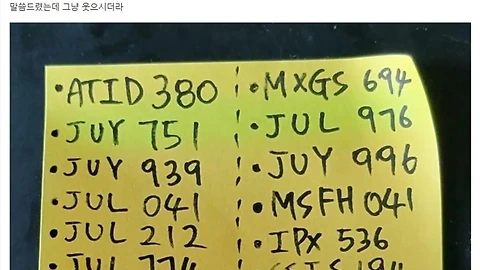 말씀드렸는데 그냥 웃으시더라
·ATID 380
·JUY 751
·JUY 939
·JUL 041
·JUL 212
·JUL 774
·MXGS 694
·JUL 976
·JUY 996
·MSFH 041
·IPX 536